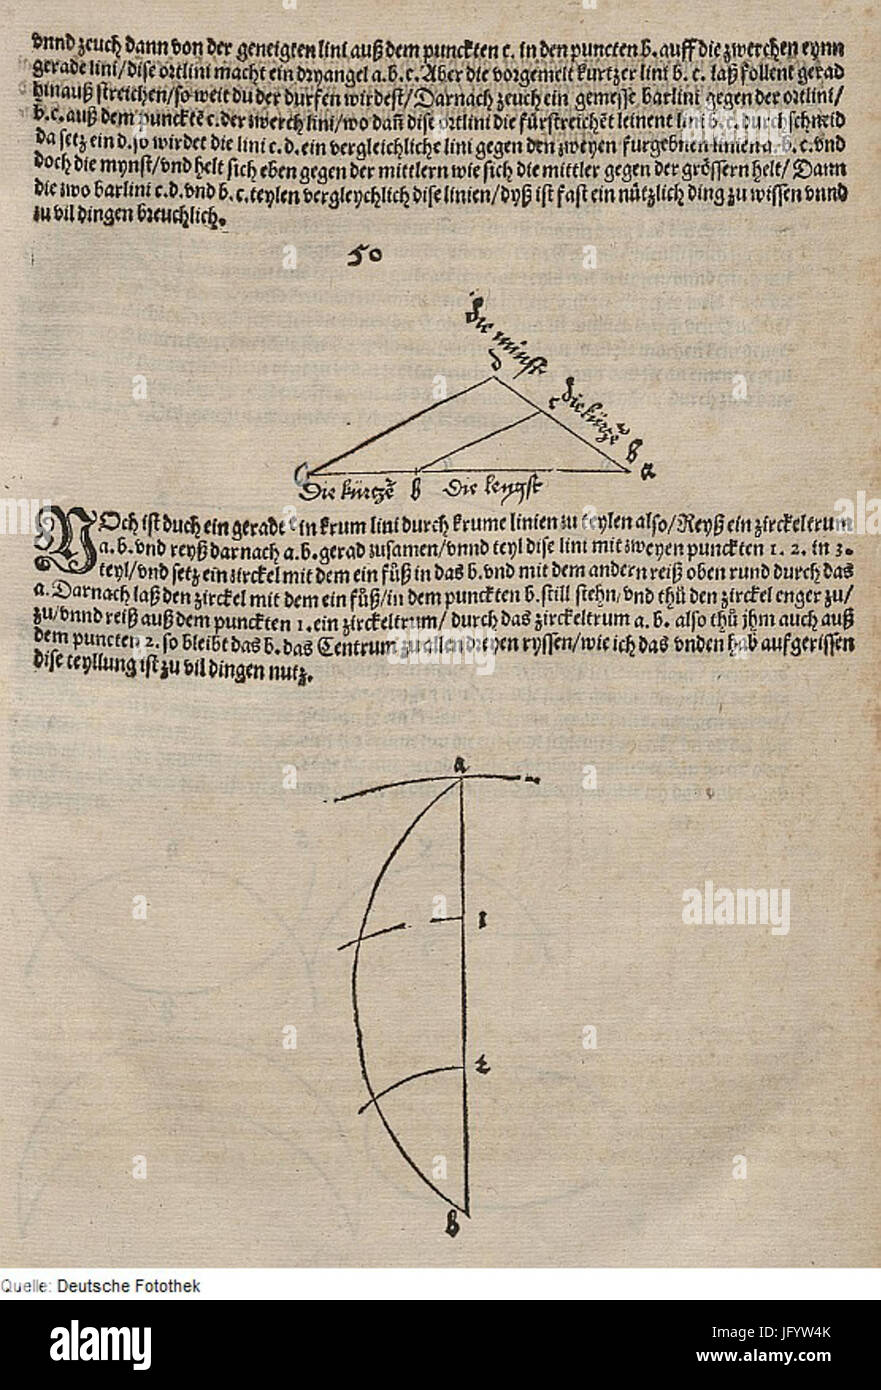 vnnd zeuch dann von der geneigten lini auß dem punckten c. in den puncten b. auff die zwerchen eynn
gerade lini/dise ortlini macht ein dryangel a.b.c. Aber die vorgemelt kurtzer lini b.c. laß follent gerad
hinauß streichen/so weit du der durfen wirdest/Darnach zeuch ein gemesse barlini gegen der ortlini/
b.c. auß dem puncktē c. der zwerch lini/wo dañ dise ortlini die fürstreichēt leinent lini b.c. durch schneid
da setz ein d. so wirdet die lini c.d. ein vergleichliche lini gegen den zweyen furgebnen linien a.b.c. vnd
doch die mynst/vnd helt sich eben gegen der mittlern wie sich die mittler gegen der grössern helt/Dann
die zwo barlini c.d. vnd b.c. teylen vergleychlich dise linien/dyß ist fast ein nützlich ding zu wissen vnnd
zu vil dingen breuchlich.
50
die minst
d
c die kürtzer
b
a
c
die kürtzer b die lengst
NOch ist duch ein gerade ein krum lini durch krume linien zu teylen also/Reyß ein zirckeltrum
a.b. vnd reyß darnach a.b. gerad zusamen/vnnd teyl dise lini mit zweyen punckten 1. 2. in 3.
teyl/vnd setz ein zirckel mit dem ein füß in das b. vnd mit dem andern reiß oben rund durch das
a. Darnach laß den zirckel mit dem ein füß/in dem punckten b. still stehn/vnd thü den zirckel enger zu/
zu/vnnd reiß auß dem punckten 1. ein zirckeltrum/durch das zirckeltrum a.b. also thü jhm auch auß
dem puncten 2. so bleibt das b. das Centrum zu allen dreyen ryssen/wie ich das vnden hab aufgerissen
dise teyllung ist zu vil dingen nutz.
a
1
2
b
Quelle: Deutsche Fotothek
alamy
alamy
alamy
alamy
Image ID: JFYW4K
www.alamy.com